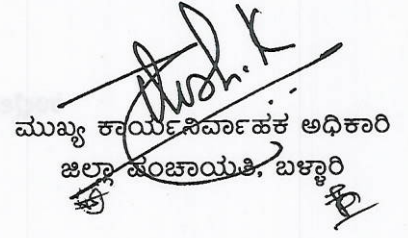 ಮುಖ್ಯ ಕಾರ್ಯನಿರ್ವಾಹಕ ಅಧಿಕಾರಿ
ಜಿಲ್ಲಾ ಪಂಚಾಯತಿ, ಬಳ್ಳಾರಿ